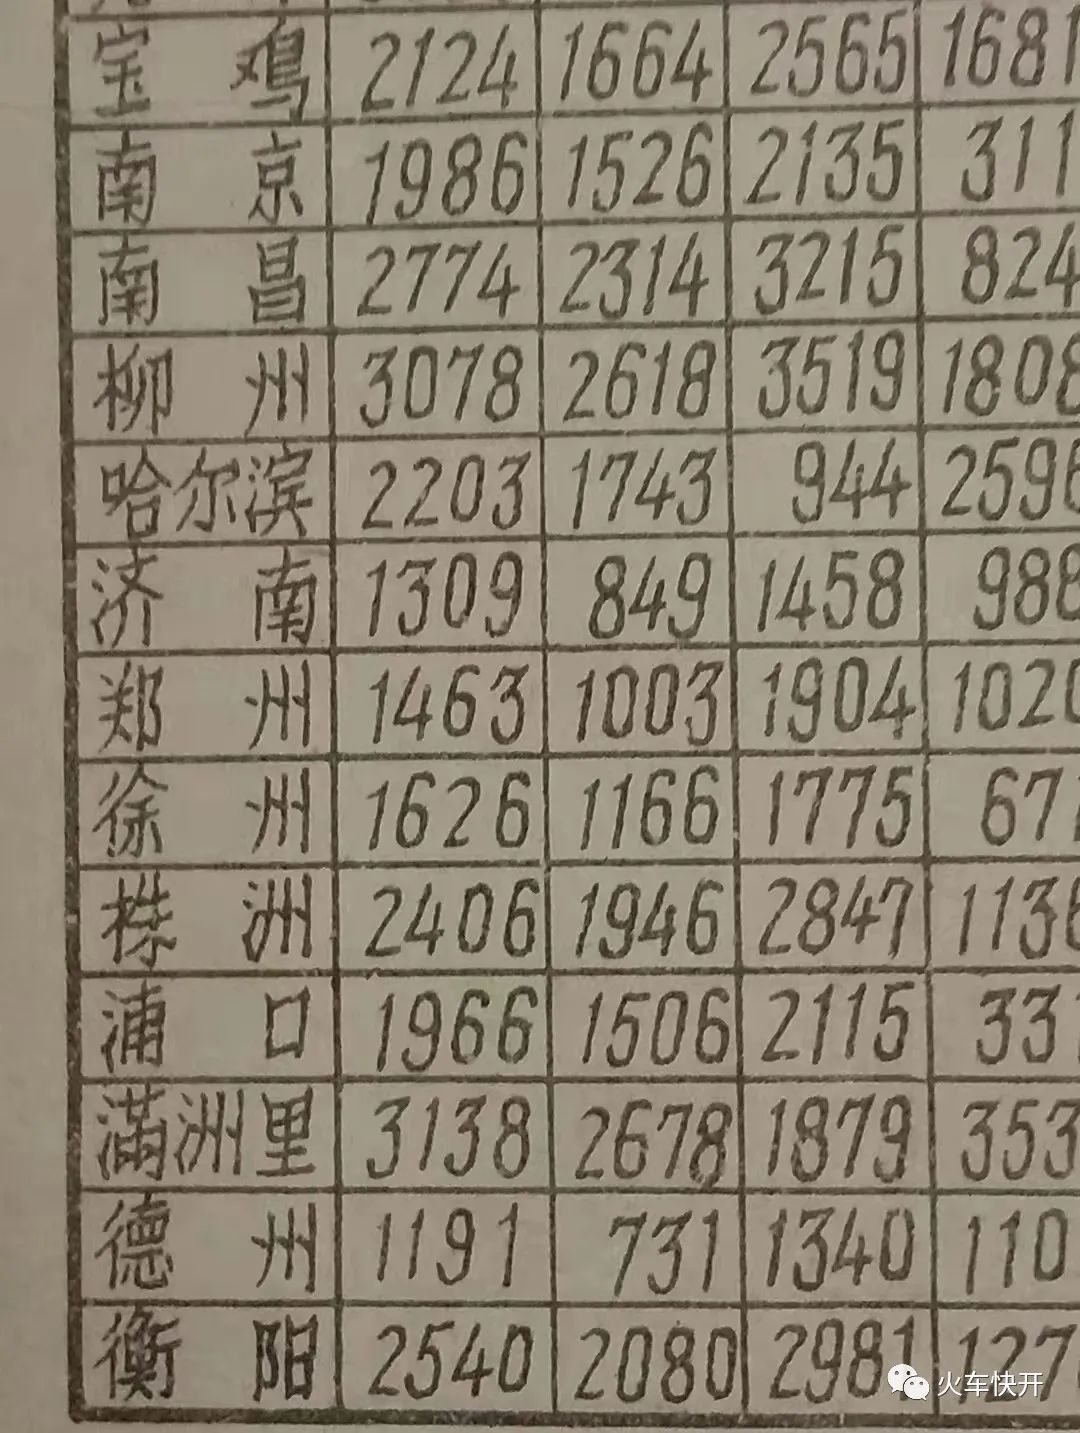 宝鸡 2124 1664 2565 1681
南京 1986 1526 2135 311
南昌 2774 2314 3215 824
柳州 3078 2618 3519 1808
哈尔滨 2203 1743 944 2596
济南 1309 849 1458 988
郑州 1463 1003 1904 1020
徐州 1626 1166 1775 67
株洲 2406 1946 2847 1136
浦口 1966 1506 2115 33
满洲里 3138 2678 1879 353
德州 1191 731 1340 110
衡阳 2540 2080 2981 127
火车快开